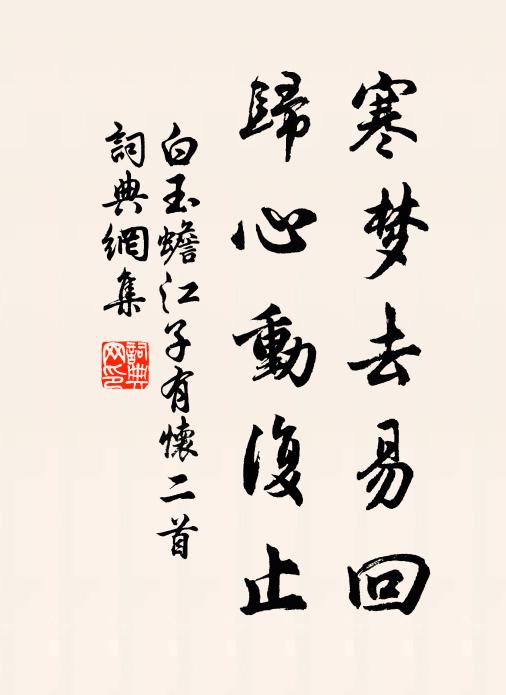 寒梦去易回
歸心動復止
白玉蟾江子有懷二首
詞典網集
詞典网印